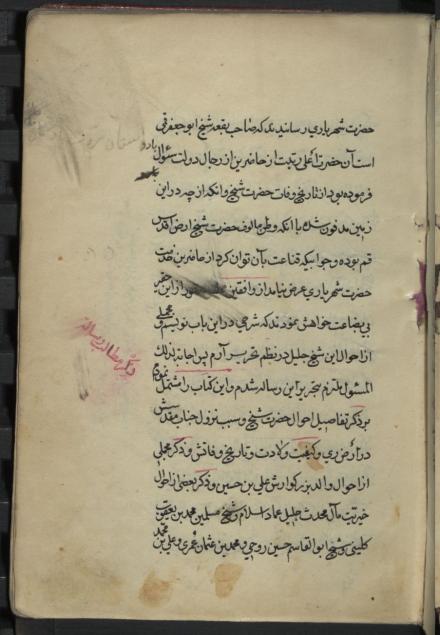 حضرت شهریاری رسانیدند که صاحب بقعه شیخ ابو جعفر قمی
است آن حضرت اعلی رتبت از حاضرین از رجال دولت سؤال
فرموده بود از تاریخ وفات حضرت شیخ و آنکه از چه در این
زمین مدفون شده با آنکه وطن مالوف حضرت شیخ ارض اقدس
قم بوده و جوابیکه قناعت بآن توان کرد از حاضرین خدمت
حضرت شهریاری عرض نیامد از واقفین از این حقیر
بی بضاعت خواهش نمودند که شرحی در این باب نویسم و مجملی
از احوال این شیخ جلیل در نظم تحریر آرم پس اجابة لذلک
المسئول ملتزم تحریر این رساله شدم و این کتاب را مشتمل نمودم
بر ذکر تفاصیل احوال حضرت شیخ و سبب نزول جناب مقدسش
در ارض ری و کیفیت ولادت و تاریخ وفاتش و ذکر مجملی
از احوال والد بزرگوارش علی بن حسین و ذکر بعضی از احوال
خیریت مآل محدث جلیل عماد اسلام و شیخ مسلمین محمد بن یعقوب
کلینی و شیخ ابو القاسم حسین روحی و محمد بن عثمان عمری و علی بن محمد
ذکر مطالب رساله